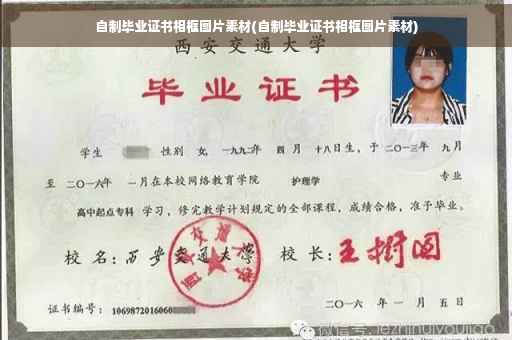 自制毕业证书相框图片素材(自制毕业证书相框图片素材)
西安交通大学
毕业证书
学生 性别 女, 一九九二年 四月 十八日生, 于二〇一三年 九月
至 二〇一六年 一月在本校网络教育学院 护理学 专业
高中起点专科 学习, 修完教学计划规定的全部课程, 成绩合格, 准予毕业。
校 名: 西安交通大学 校 长: 王树国
证书编号: 1069872016060
二〇一六 年 一 月 五 日
微信号: jiezhinuiyoujiao